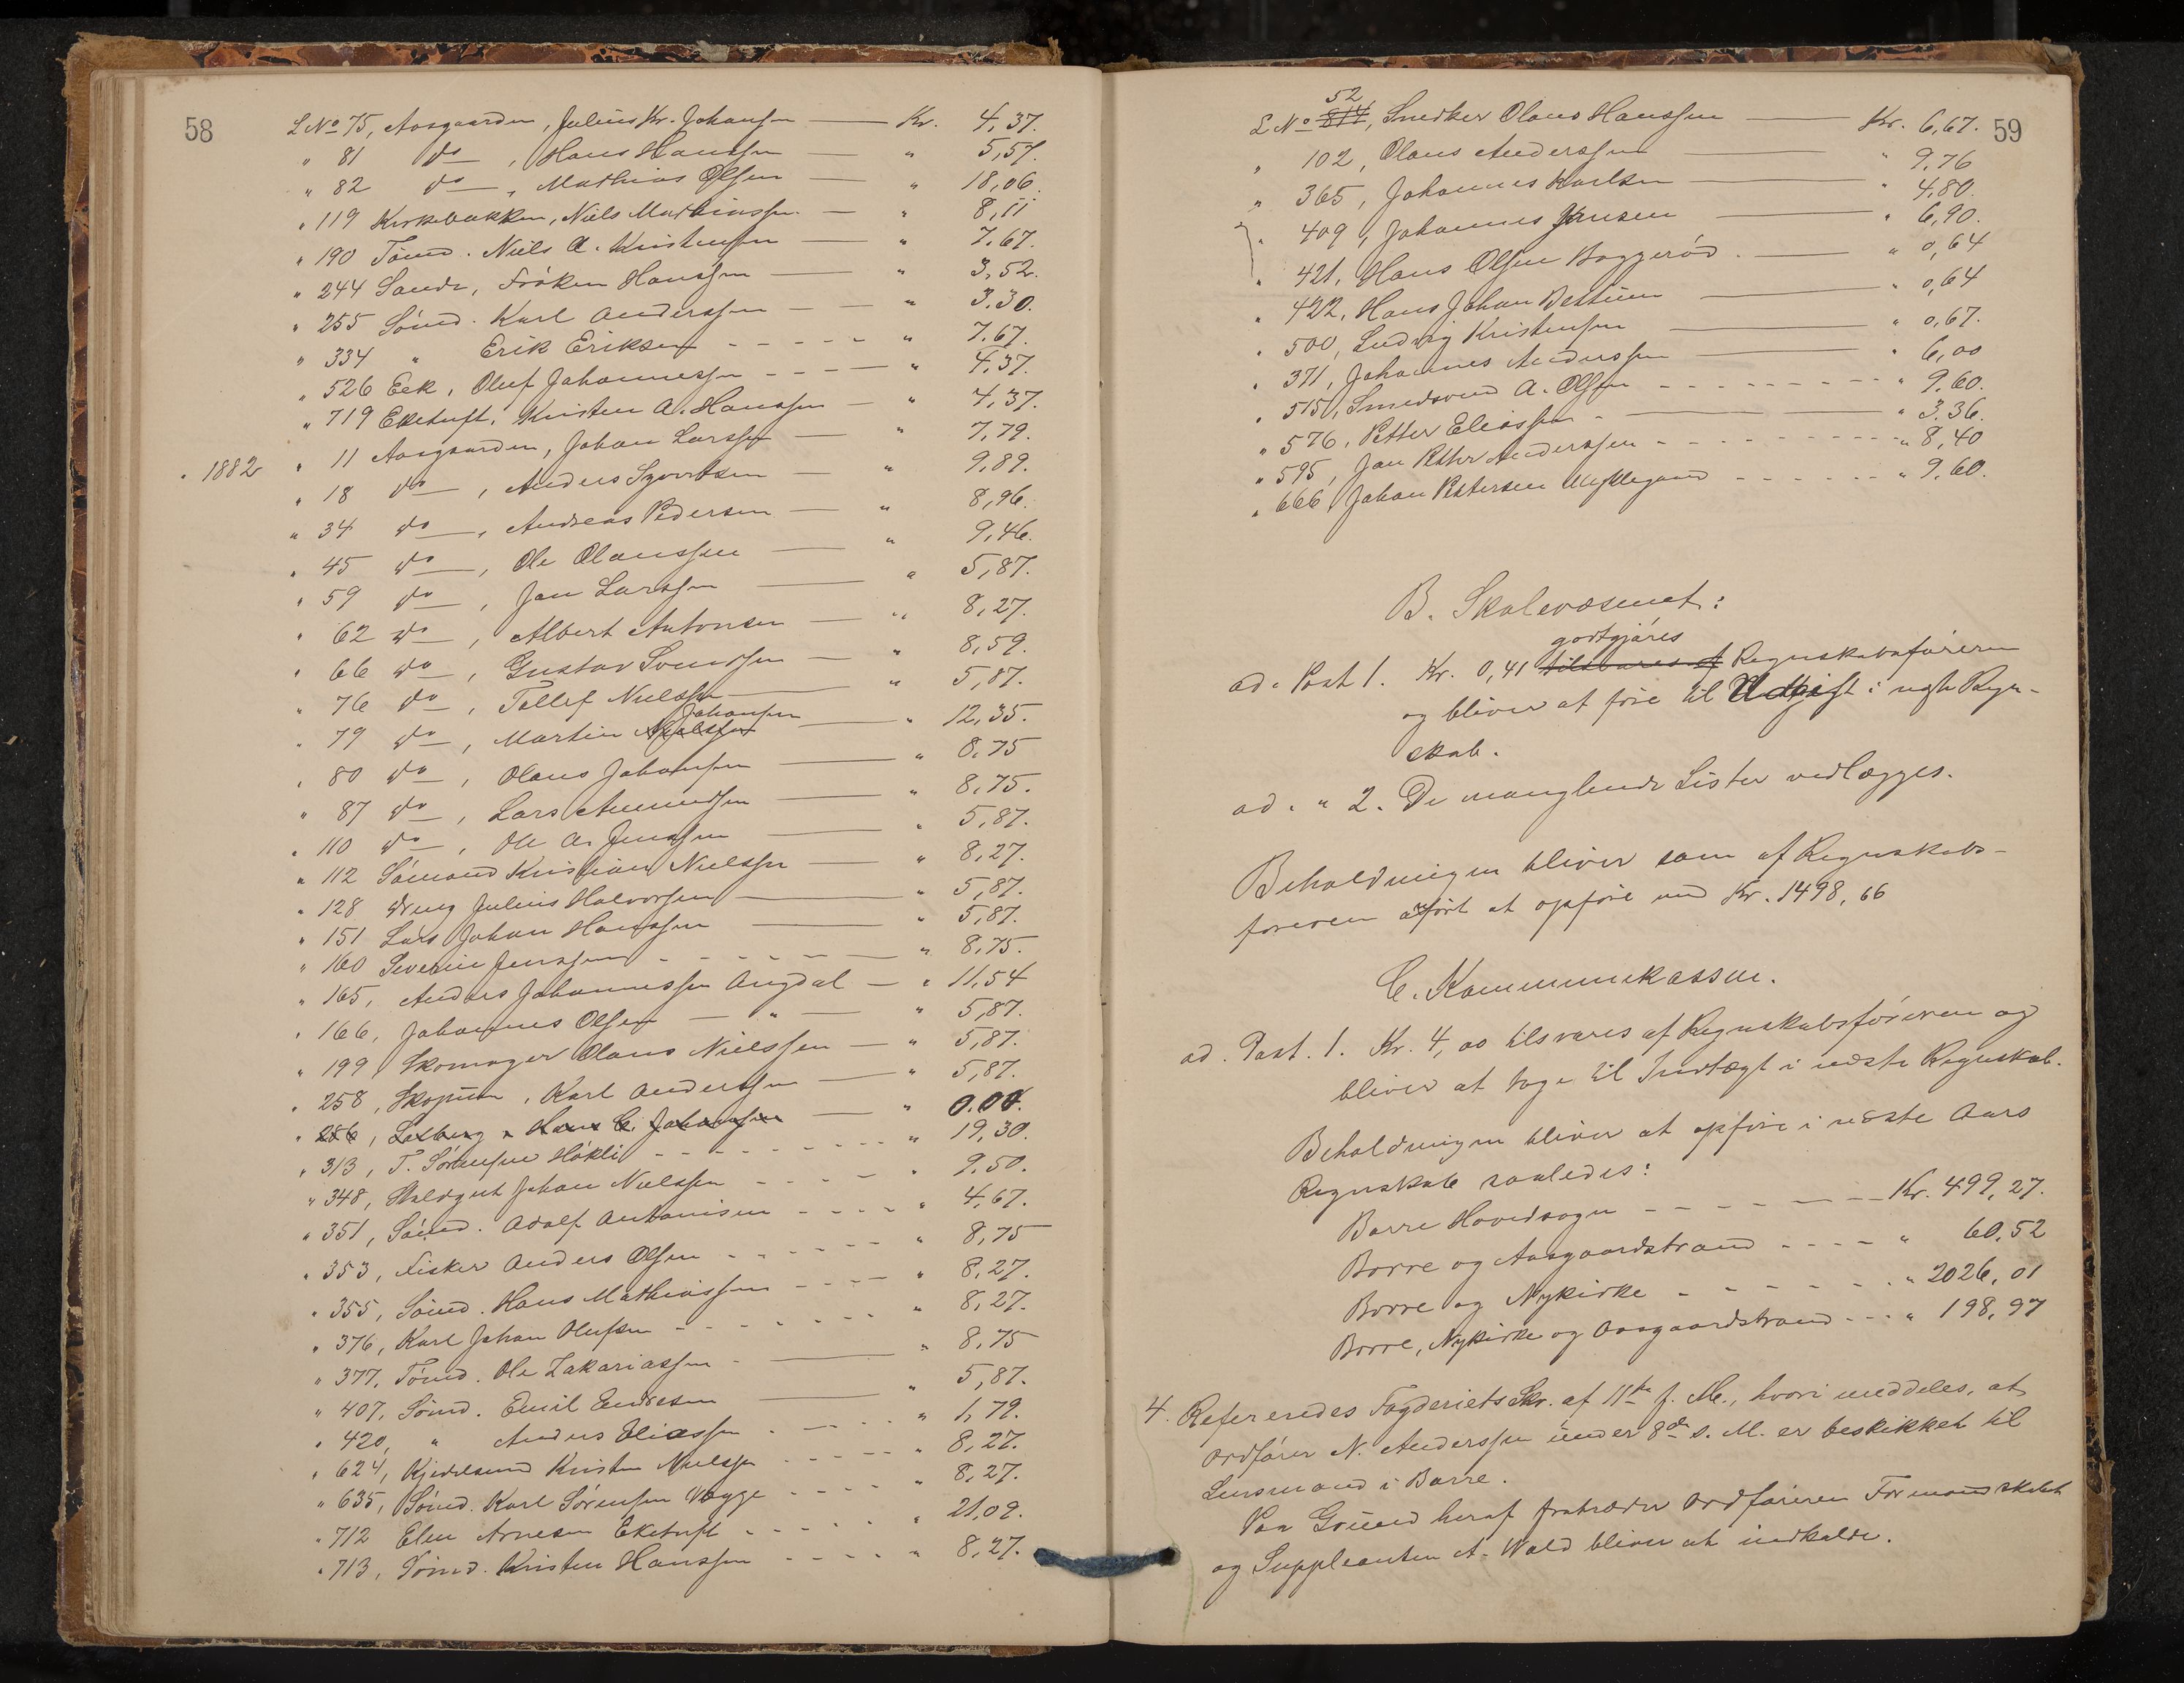 58
L No 75, Aasgaarden, Julius Kr. Johansen — Kr. 4,37.
" 81 do , Hans Hanssen — " 5,57.
" 82 do , Mathias Olsen — " 18,06.
" 119 Kirkebakken, Niels Mathiassen — " 8,11
" 190 Tømd. Niels A. Kristensen — " 7.67.
" 244 Sande, Frøken Hanssen — " 3,52.
" 255 Sømd. Karl Anderssen — " 3.30.
" 334 " Erik Eriksen - - - - - " 7.67.
" 526 Eek, Oluf Johannessen - - - - " 4,37.
" 719 Eketuft, Kristen A. Hanssen — " 4,37.
" 1882 " 11 Aasgaarden, Johan Larssen — " 7,79.
" 18 do , Anders Syvertsen — " 9,89.
" 34 do , Andreas Pedersen — " 8,96.
" 45 do , Ole Olaussen — " 9,46.
" 59 do , Jan Larssen — " 5,87.
" 62 do , Albert Antonsen — " 8,27.
" 66 do , Gustav Svendsen — " 8,59.
" 76 do , Tollef Nielssen — " 5,87.
" 79 do , Martin Nielssen Johansen — " 12,35.
" 80 do , Olaus Johansen — " 8,75
" 87 do , Lars Amundsen — " 8,75.
" 110 do , Ole A. Jenssen — " 5,87.
" 112 Sømand Kristian Nielssen — " 8,27.
" 128 dreng Julius Halvorsen — " 5,87.
" 151 Lars Johan Hanssen — " 5,87.
" 160 Severin Jenssen - - - - - " 8,75.
" 165, Anders Johannessen Augdal — " 11,54
" 166, Johannes Olsen — " — " 5,87.
" 199 Skomager Olaus Nielssen — " 5,87.
" 258, Skopum, Karl Anderssen — " 5,87.
" 286, Solberg, Hans C. Johansen — " 0.00.
" 313, T. Sørensen Høkli - - - - - " 19,30.
" 348, Staldgut Johan Nielssen - - - - " 9.50.
" 351, Sømd. Adolf Antonisen - - - - " 4,67.
" 353, Fisker Anders Olsen - - - - - " 8,75
" 355, Sømd. Hans Mathiassen - - - - " 8,27.
" 376, Karl Johan Olufsen - - - - - " 8,27.
" 377, Tømd. Ole Zakariassen — " 8,75
" 407, Sømd. Emil Endresen — " 5,87.
" 420, " Anders Eliassen - - - - " 1,79.
" 624, Kristen Nielssen - - - - " 8,27.
" 635, Sømd. Karl Sørensen Vegge - - - - " 8,27.
" 712 Elen Arnesen Eketuft - - - - - " 21,09.
" 713, Tømd. Kristen Hanssen - - - - " 8,27.
59
52
L No 811, Snedker Olaus Hanssen — Kr. 6,67.
" 102, Olaus Anderssen — " 9,76
" 365, Johannes Karlsen — " 4,80.
" 409, Johannes Jensen — " 6,90.
" 421, Hans Olsen Baggerød — " 0,64
" 422, Hans Johan Bettum — " 0,64
" 500, Ludvig Kristensen — " 0,67.
" 371, Johannes Anderssen — " 6,00
" 515, Smedsvend A. Olsen - - - - - " 9,60.
" 576, Petter Eliassen — " 3.36.
" 595, Jan Petter Anderssen - - - - - " 8,40
" 666, Johan Pettersen Myllegaard - - - - - " 9,60.
B. Skolevæsenet:
godtgjøres
ad. Post 1. Kr. 0,41 tilsvares af Regnskabsføreren
og bliver at føre til Udgift i næste Regn-
skab.
ad. " 2. De manglende Lister vedlægges.
Beholdningen bliver som af Regnskabs-
føreren anført at opføre med Kr. 1498,66
C. Kommunekassen.
ad. Post. 1. Kr. 4,00 tilsvares af Regnskabsføreren og
bliver at tage til Indtægt i næste Regnskab.
Beholdningen bliver at opføre i næste Aars
Regnskab saaledes:
Borre Hovedsogn - - - - - Kr. 499,27.
Borre og Aasgaardstrand - - - - " 60,52
Borre og Nykirke - - - - - " 2026,01
Borre, Nykirke og Aasgaardstrand - - - " 198,97
4. Refereredes Fogderiets Skr. af 11te f. M., hvori meddeles, at
Ordfører N. Anderssen under 8de s. M. er beskikket til
Lensmand i Borre.
Paa Grund heraf fratræder Ordføreren Formandskabet
og Suppleanten A. Wold bliver at indkalde.